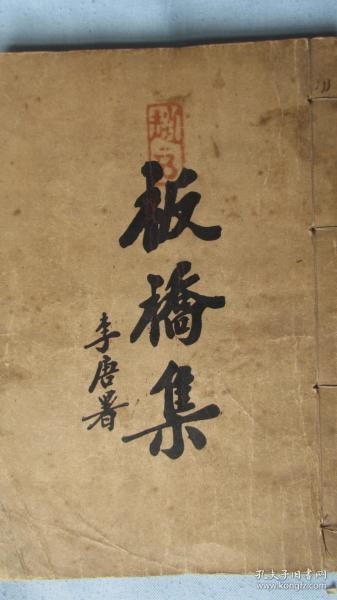 板橋集
李唐署
孔夫子旧书网